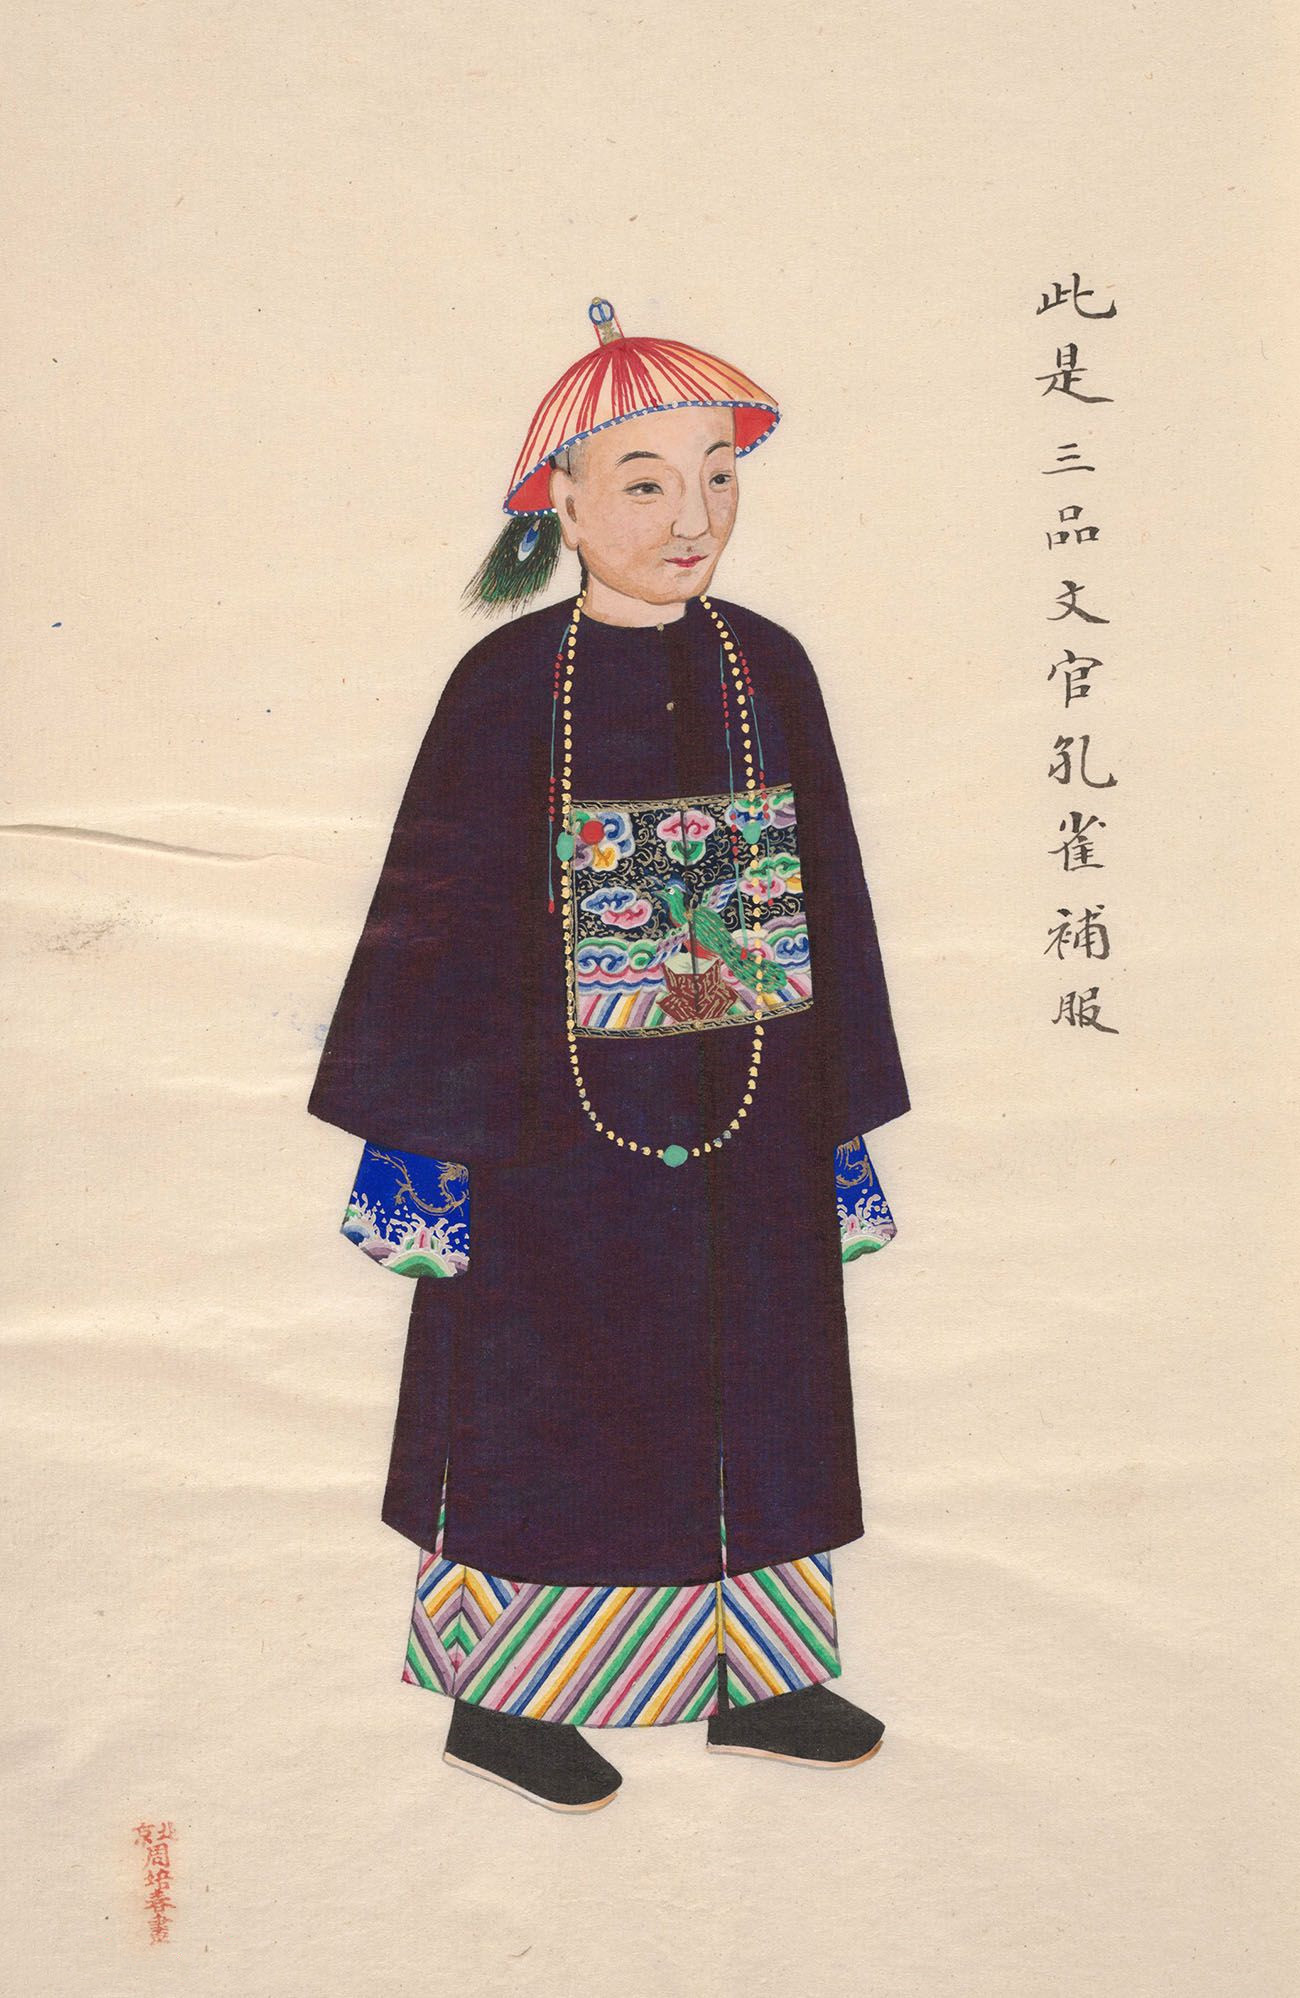 此是三品文官孔雀補服
北京
周培春畫